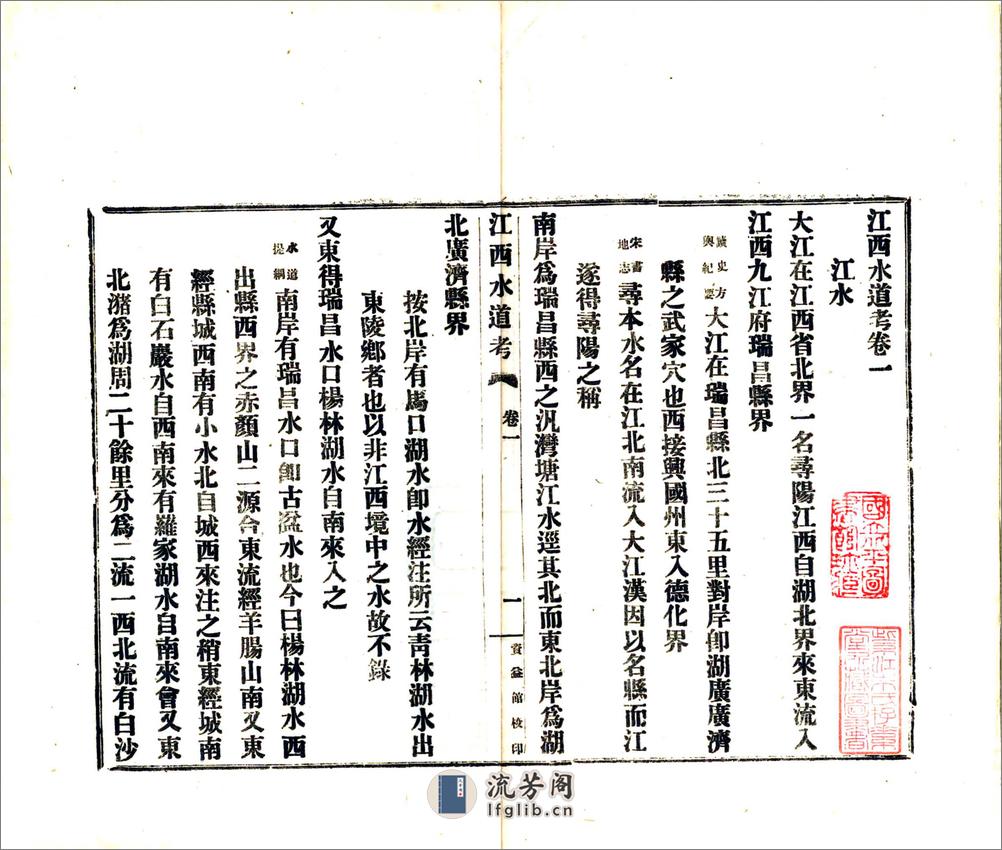 江西水道考卷一
江水
大江在江西省北界一名尋陽江西自湖北界來東流入
江西九江府瑞昌縣界
讀史方輿紀要大江在瑞昌縣北三十五里對岸卽湖廣廣濟
縣之武家穴也西接興國州東入德化界
宋書地志尋本水名在江北南流入大江漢因以名縣而江
遂得尋陽之稱
南岸爲瑞昌縣西之汎灣塘江水逕其北而東北岸爲湖
江西水道考
卷一
一
資益館校印
北廣濟縣界
按北岸有馬口湖水卽水經注所云靑林湖水出
東陵鄉者也以非江西境中之水故不錄
又東得瑞昌水口楊林湖水自南來入之
水道提綱南岸有瑞昌水口卽古湓水也今曰楊林湖水西
出縣西界之赤顏山二源合東流經羊腸山南又東
經縣城西南有小水北自城西來注之稍東經城南
有白石巖水自西南來有羅家湖水自南來會又東
北豬爲湖周二十餘里分爲二流一西北流有白沙
流芳阁
lfglib.cn